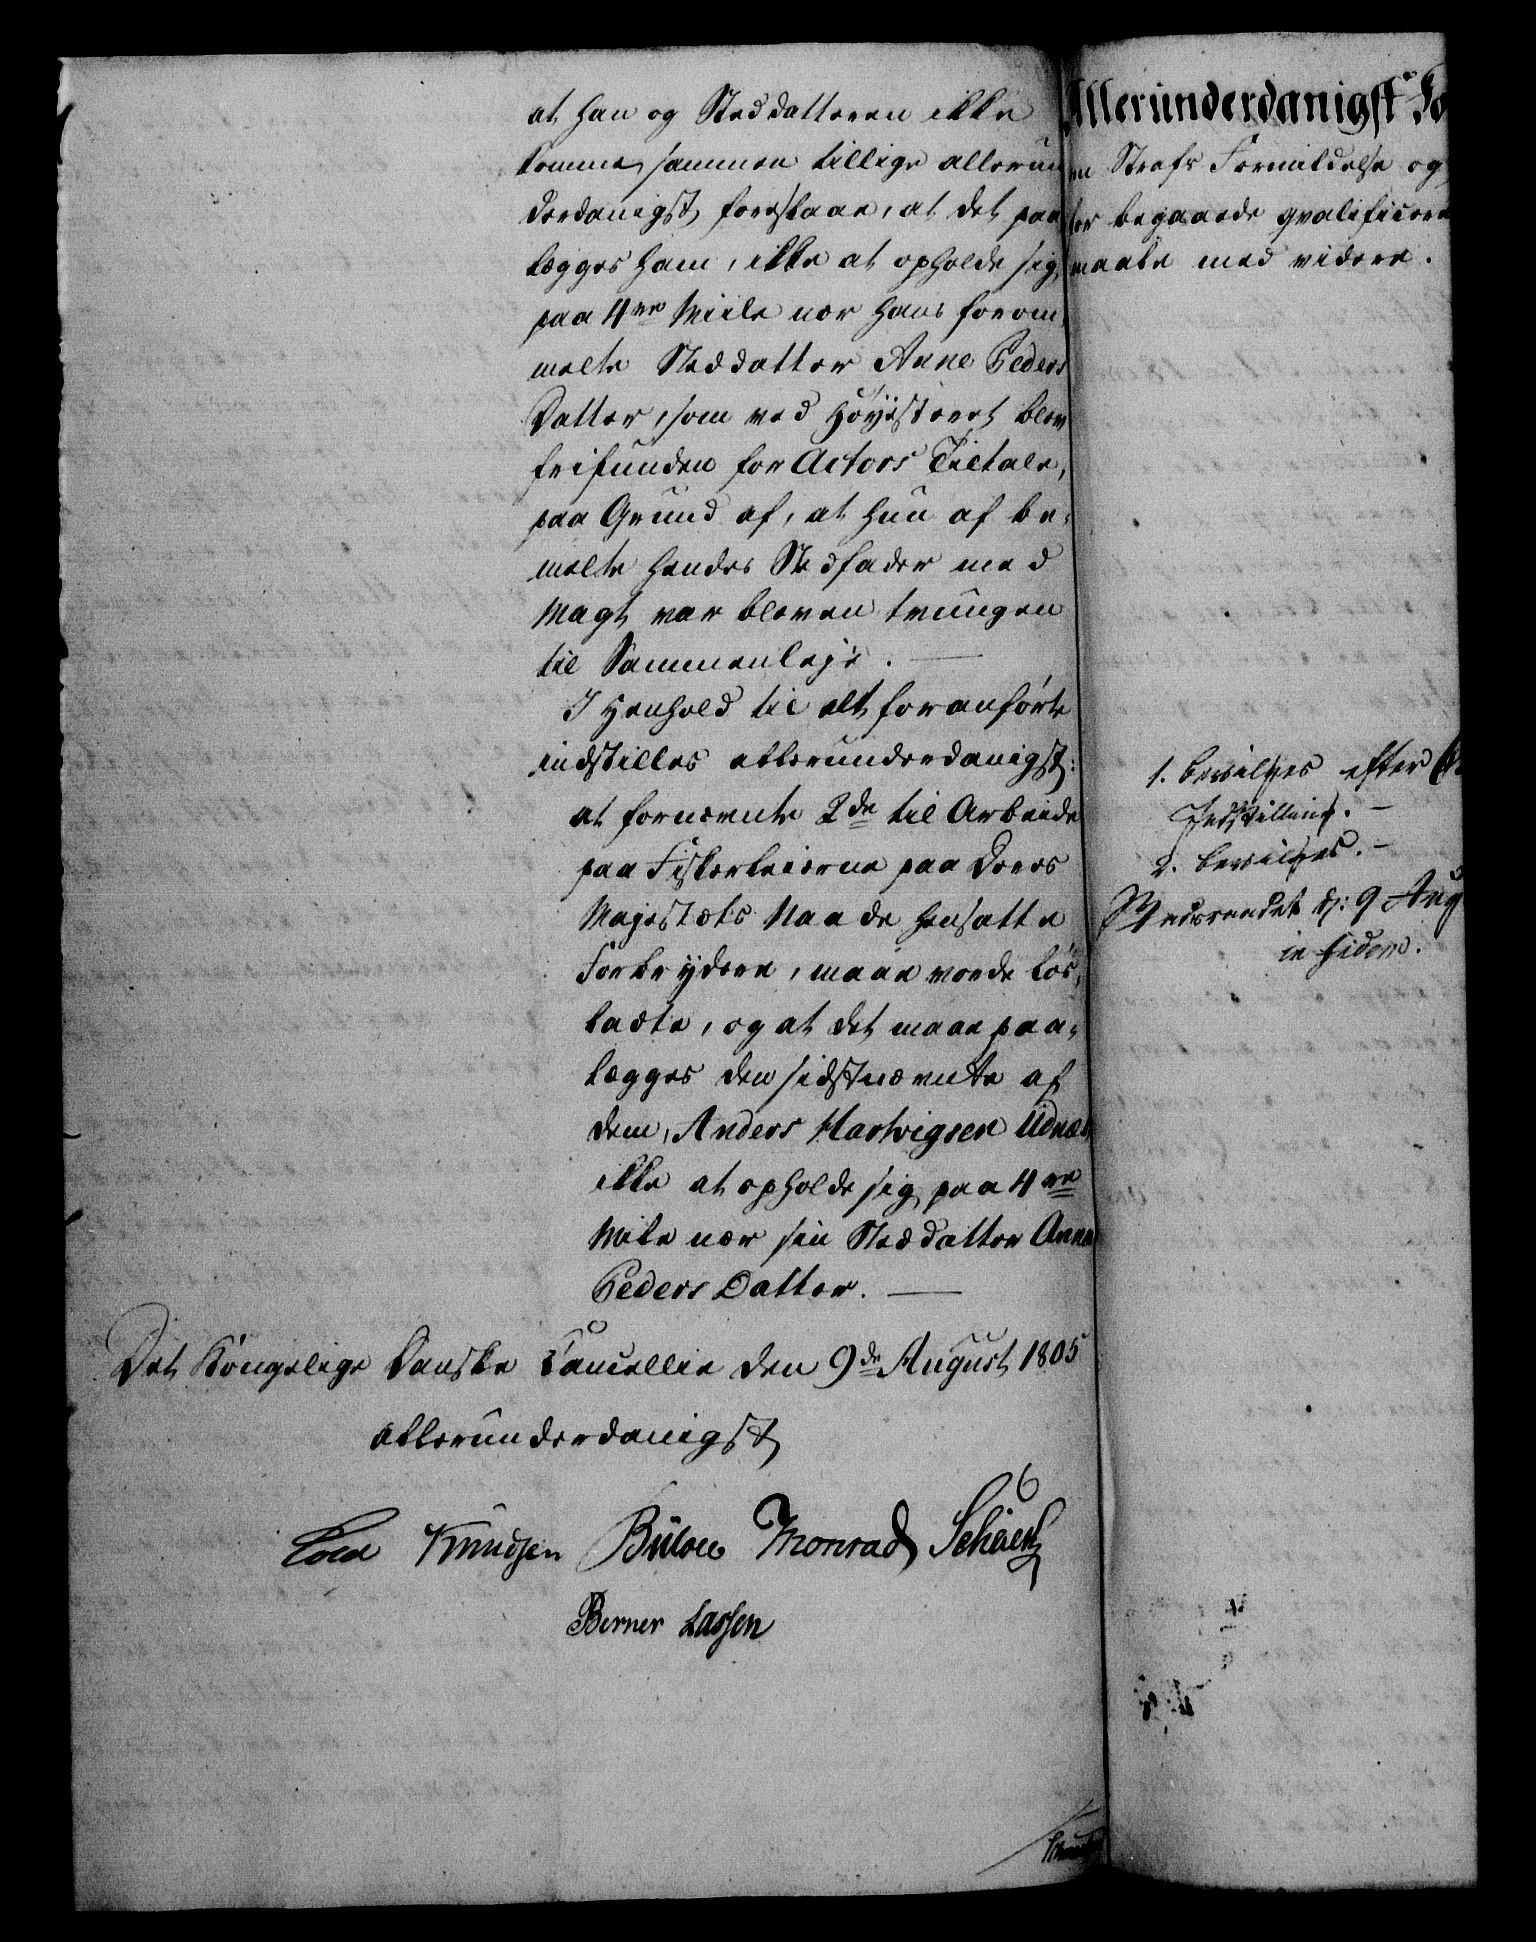 at han og Steddatteren ikke
komme sammen tillige allerun
derdanigst foreslaae, at det paa
lægges ham, ikke at opholde sig
paa 4re Miile nær hans forom,
melte Steddatter Anne Peders
Datter, som ved Høyesteret blev
frifunden for Actors Tiltale,
paa Grund af, at hun af be,
melte hendes Stedfader med
Magt var bleven tvungen
til Sammenleje.
I Henhold til alt foranførte
indstilles allerunderdanigst:
at fornævnte 2de til Arbeide
paa Fiskerleierne paa Deres
Majestæts Naade hensatte
Forbrydere, maae vorde løs,
ladte, og at det maae paa,
lægges den sidstnævnte af
dem, Anders Hartvigsen Udnæs
ikke at opholde sig paa 4re
Mile nær sin Steddatter Anne
Peders Datter.
Det Kongelige Danske Cancellie den 9de August 1805
allerunderdanigst
Cold Knudsen Bülow Monrad Schüetz
Berner Lassen
Allerunderdanigst Fo
en Strafs Formildelse og
for begaaede qvalificere
maale med videre.
1. bevilges efter
Indstilling.
2. bevilges.
d: 9 Aug